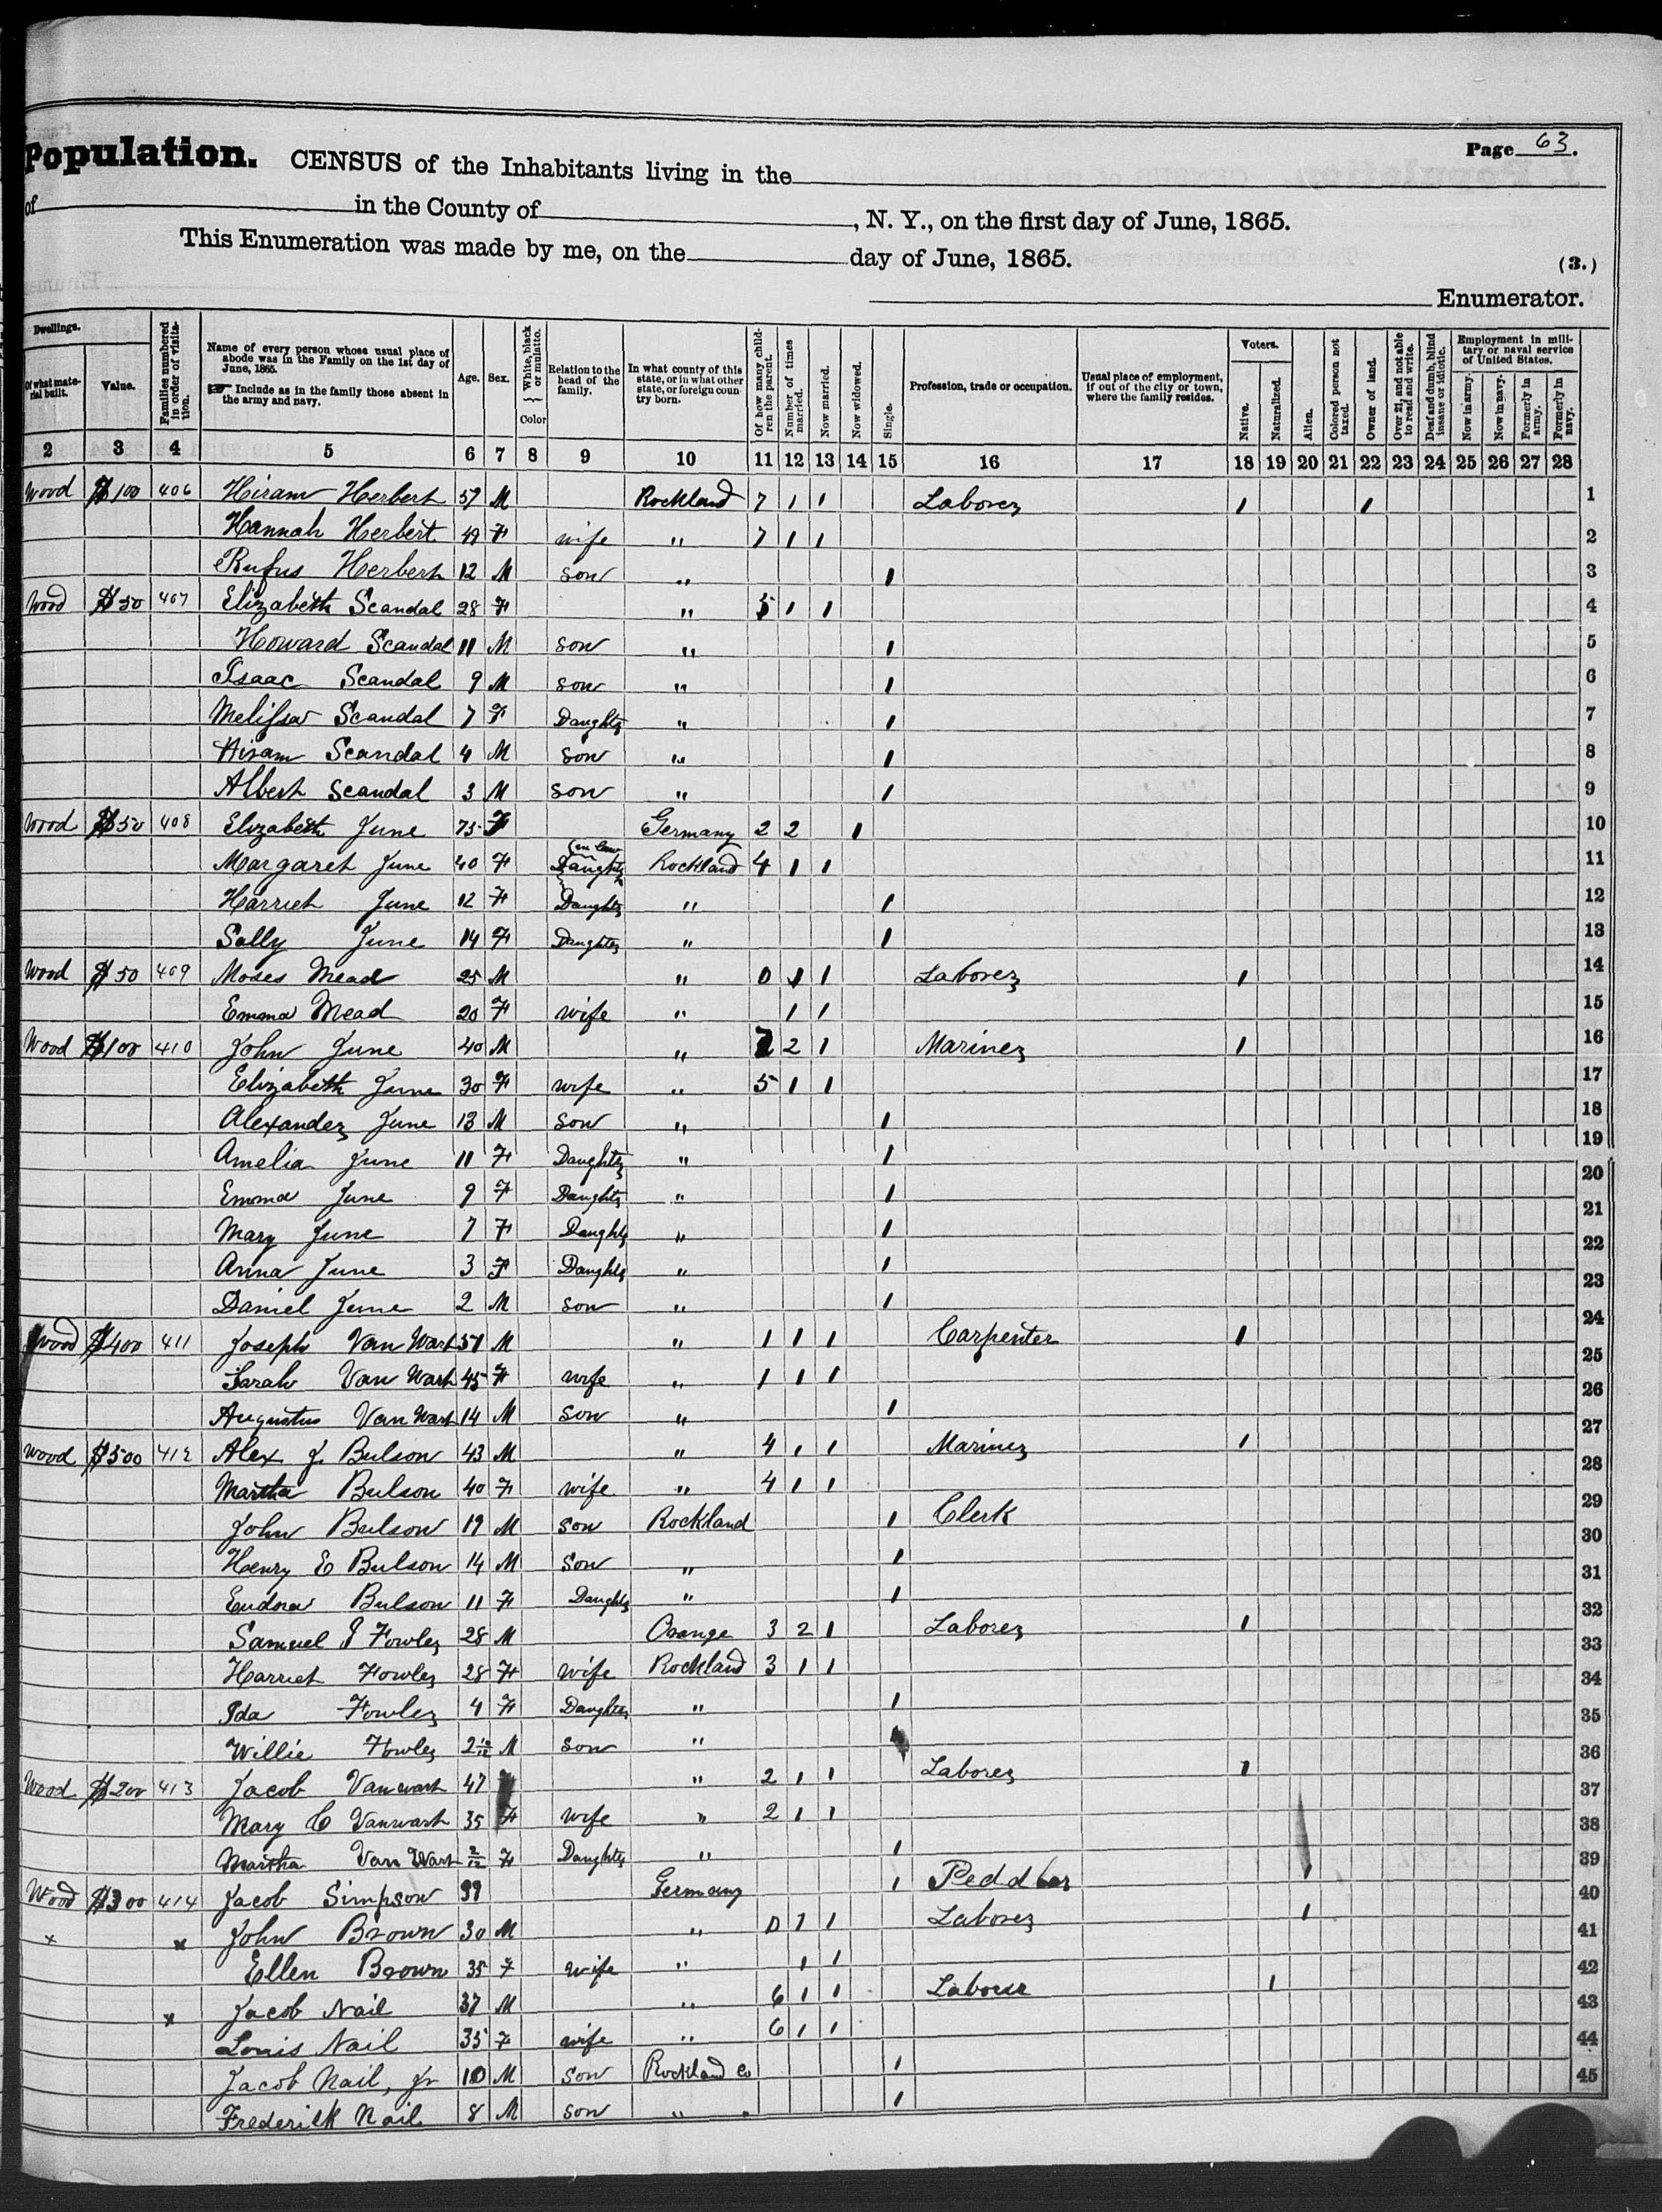 Page 63.
Population. CENSUS of the Inhabitants living in the
of in the County of , N. Y., on the first day of June, 1865.
This Enumeration was made by me, on the day of June, 1865.
(3.)
Enumerator.
Dwellings. Of what material built. Value. Families numbered in order of visitation. Name of every person whose usual place of abode was in the Family on the 1st day of June, 1865. ☞ Include as in the family those absent in the army and navy. Age. Sex. White, black or mulatto. Color Relation to the head of the family. In what county of this state, or in what other state, or foreign country born. Of how many children the parent. Number of times married. Now married. Now widowed. Single. Profession, trade or occupation. Usual place of employment, if out of the city or town, where the family resides. Voters. Native. Naturalized. Alien. Colored person not taxed. Owner of land. Over 21, and not able to read and write. Deaf and dumb, blind insane or idiotic. Employment in military or naval service of United States. Now in army. Now in navy. Formerly in army. Formerly in navy.
2 3 4 5 6 7 8 9 10 11 12 13 14 15 16 17 18 19 20 21 22 23 24 25 26 27 28
Wood $100 406 Hiram Herbert 57 M Rockland 7 1 1 Laborer 1 1 1
Hannah Herbert 49 F wife " 7 1 1 2
Rufus Herbert 12 M son " 1 3
Wood $50 407 Elizabeth Scandal 28 F " 5 1 1 4
Howard Scandal 11 M son " 1 5
Isaac Scandal 9 M son " 1 6
Melissa Scandal 7 F Daughter " 1 7
Hiram Scandal 4 M son " 1 8
Albert Scandal 3 M son " 1 9
Wood $50 408 Elizabeth June 75 F Germany 2 2 1 10
Margaret June 40 F Daughter in law Rockland 4 1 1 11
Harriet June 12 F Daughter " 1 12
Sally June 14 F Daughter " 1 13
Wood $50 409 Moses Mead 25 M " 0 1 1 Laborer 1 14
Emma Mead 20 F wife " 1 1 15
Wood $100 410 John June 40 M " 2 1 Mariner 1 16
Elizabeth June 30 F wife " 5 1 1 17
Alexander June 13 M son " 1 18
Amelia June 11 F Daughter " 1 19
Emma June 9 F Daughter " 1 20
Mary June 7 F Daughter " 1 21
Anna June 3 F Daughter " 1 22
Daniel June 2 M son " 1 23
Wood $400 411 Joseph Van Wart 51 M " 1 1 1 Carpenter 1 24
Sarah Van Wart 45 F wife " 1 1 1 25
Augustus Van Wart 14 M son " 1 26
Wood $500 412 Alex J. Bulson 43 M " 4 1 1 Mariner 1 27
Martha Bulson 40 F wife " 4 1 1 28
John Bulson 19 M son Rockland 1 Clerk 29
Henry E Bulson 14 M Son " 1 30
Eudora Bulson 11 F Daughter " 1 31
Samuel J Fowler 28 M Orange 3 2 1 Laborer 1 32
Harriet Fowler 28 F wife Rockland 3 1 1 33
Ida Fowler 4 F Daughter " 1 34
Willie Fowler 2 M son " 35
Wood $200 413 Jacob Vanwart 47 " 2 1 1 Laborer 1 36
Mary C Vanwart 35 F wife " 2 1 1 37
Martha Van Wart 2/12 F Daughter " 1 38
Wood $300 414 Jacob Simpson Germany 1 Peddler 1 39
x x John Brown 30 M " 0 1 1 Laborer 1 40
Ellen Brown 35 F wife " 1 1 41
x Jacob Nail 37 M " 6 1 1 Laborer 1 42
Louis Nail 35 F wife " 6 1 1 43
Jacob Nail, Jr 10 M son Rockland Co 1 44
Frederick Nail 8 M son " 1 45